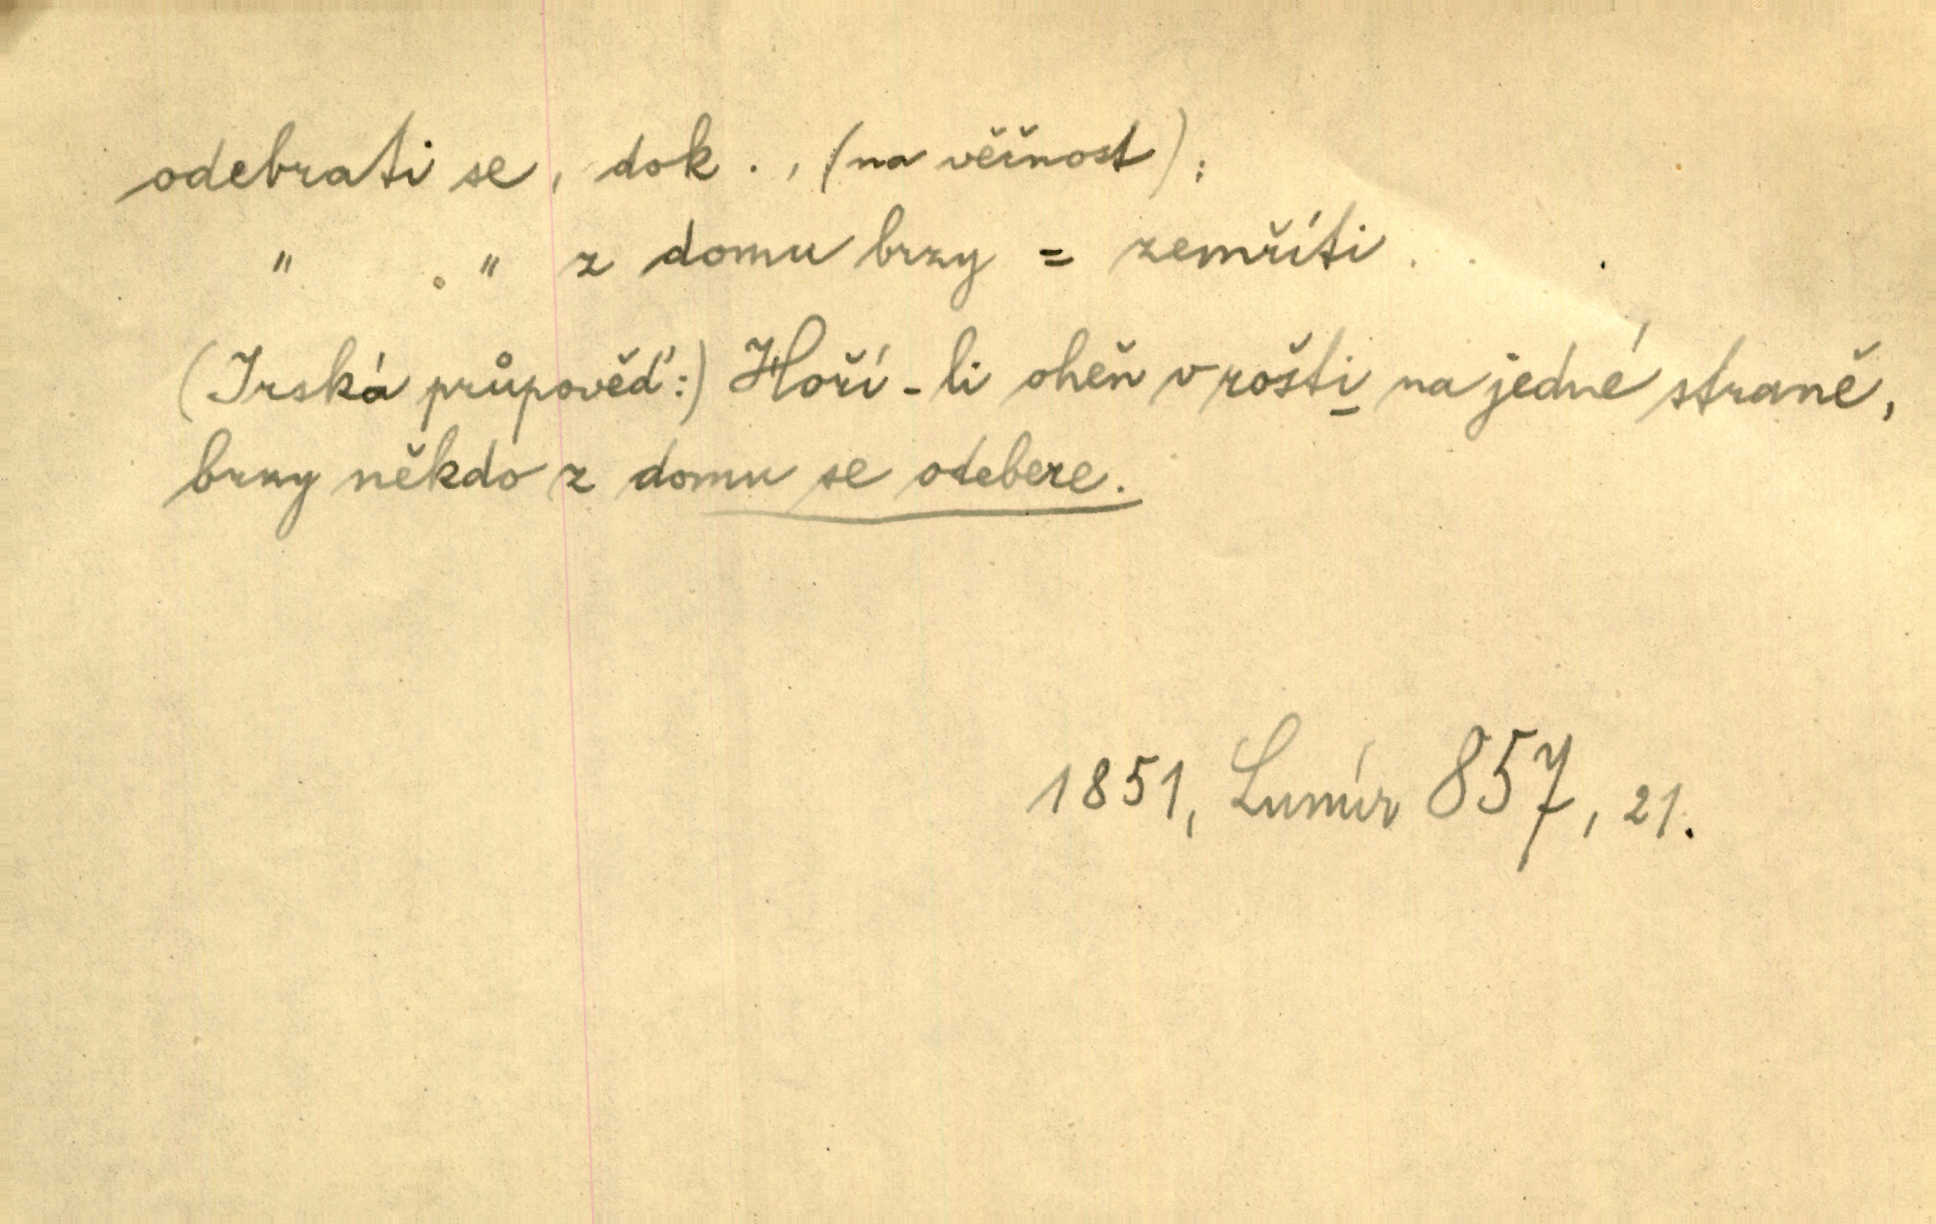 odebrati se, dok., (na věčnost);
" " z domu brzy = zemříti.
(Irská průpověď:) Hoří-li oheň v rošti na jedné straně,
brzy někdo z domu se odebere.
1851, Lumír 857, 21.